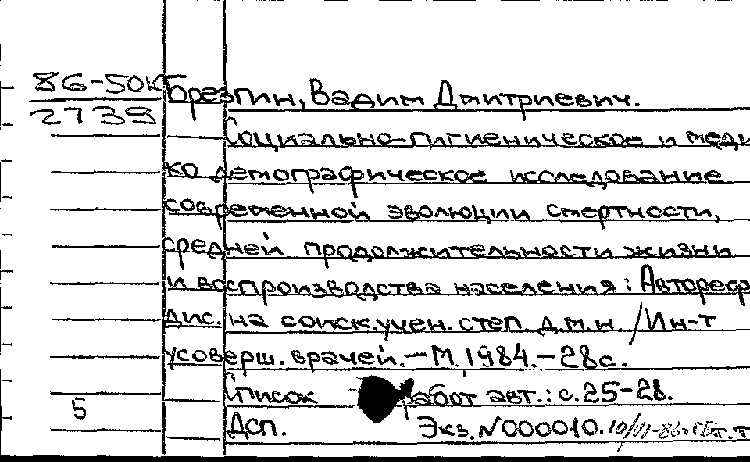 86-50К
2739
Брезгин, Вадим Дмитриевич.
Социально-гигиеническое и меди
ко демографическое исследование
современной эволюции смертности,
средней продолжительности жизни
и воспроизводства населения: Автореф
дис. на соиск. учен. степ. д.м.н. /Ин-т
усоверш. врачей. – М, 1984. – 28с.
Список работ авт.: с. 25-28.
5
Дсп. Экз. N000010.